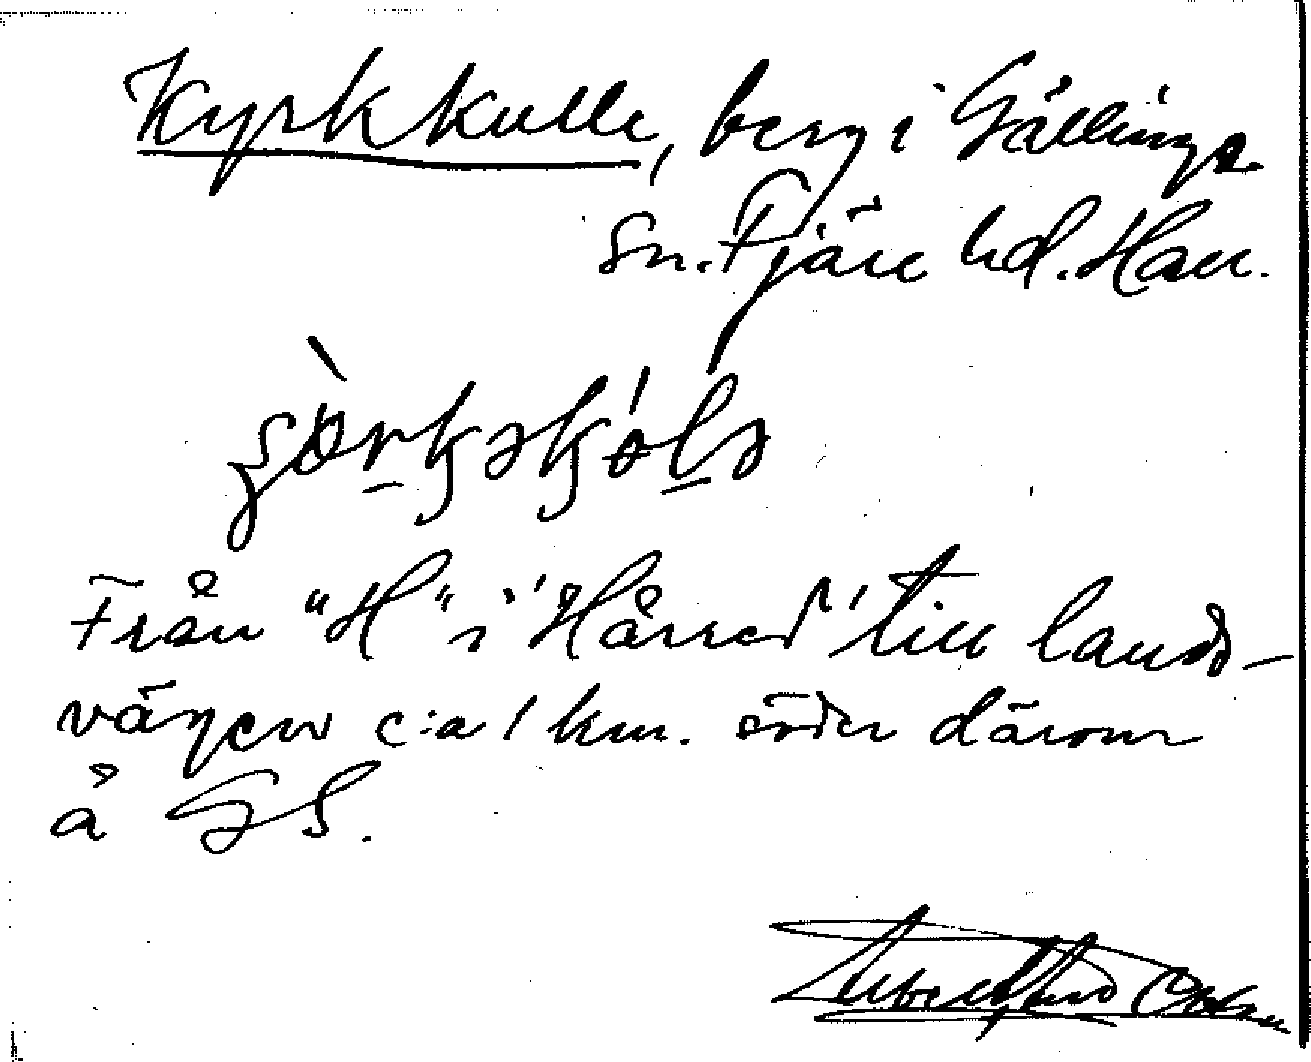 Kyrkkulle, berg i Gällinge
sn. Fjäre hd. Hall.
Från "H" i "Hårred" till lands-
vägen c:a 1 km. söder därom
å GS.